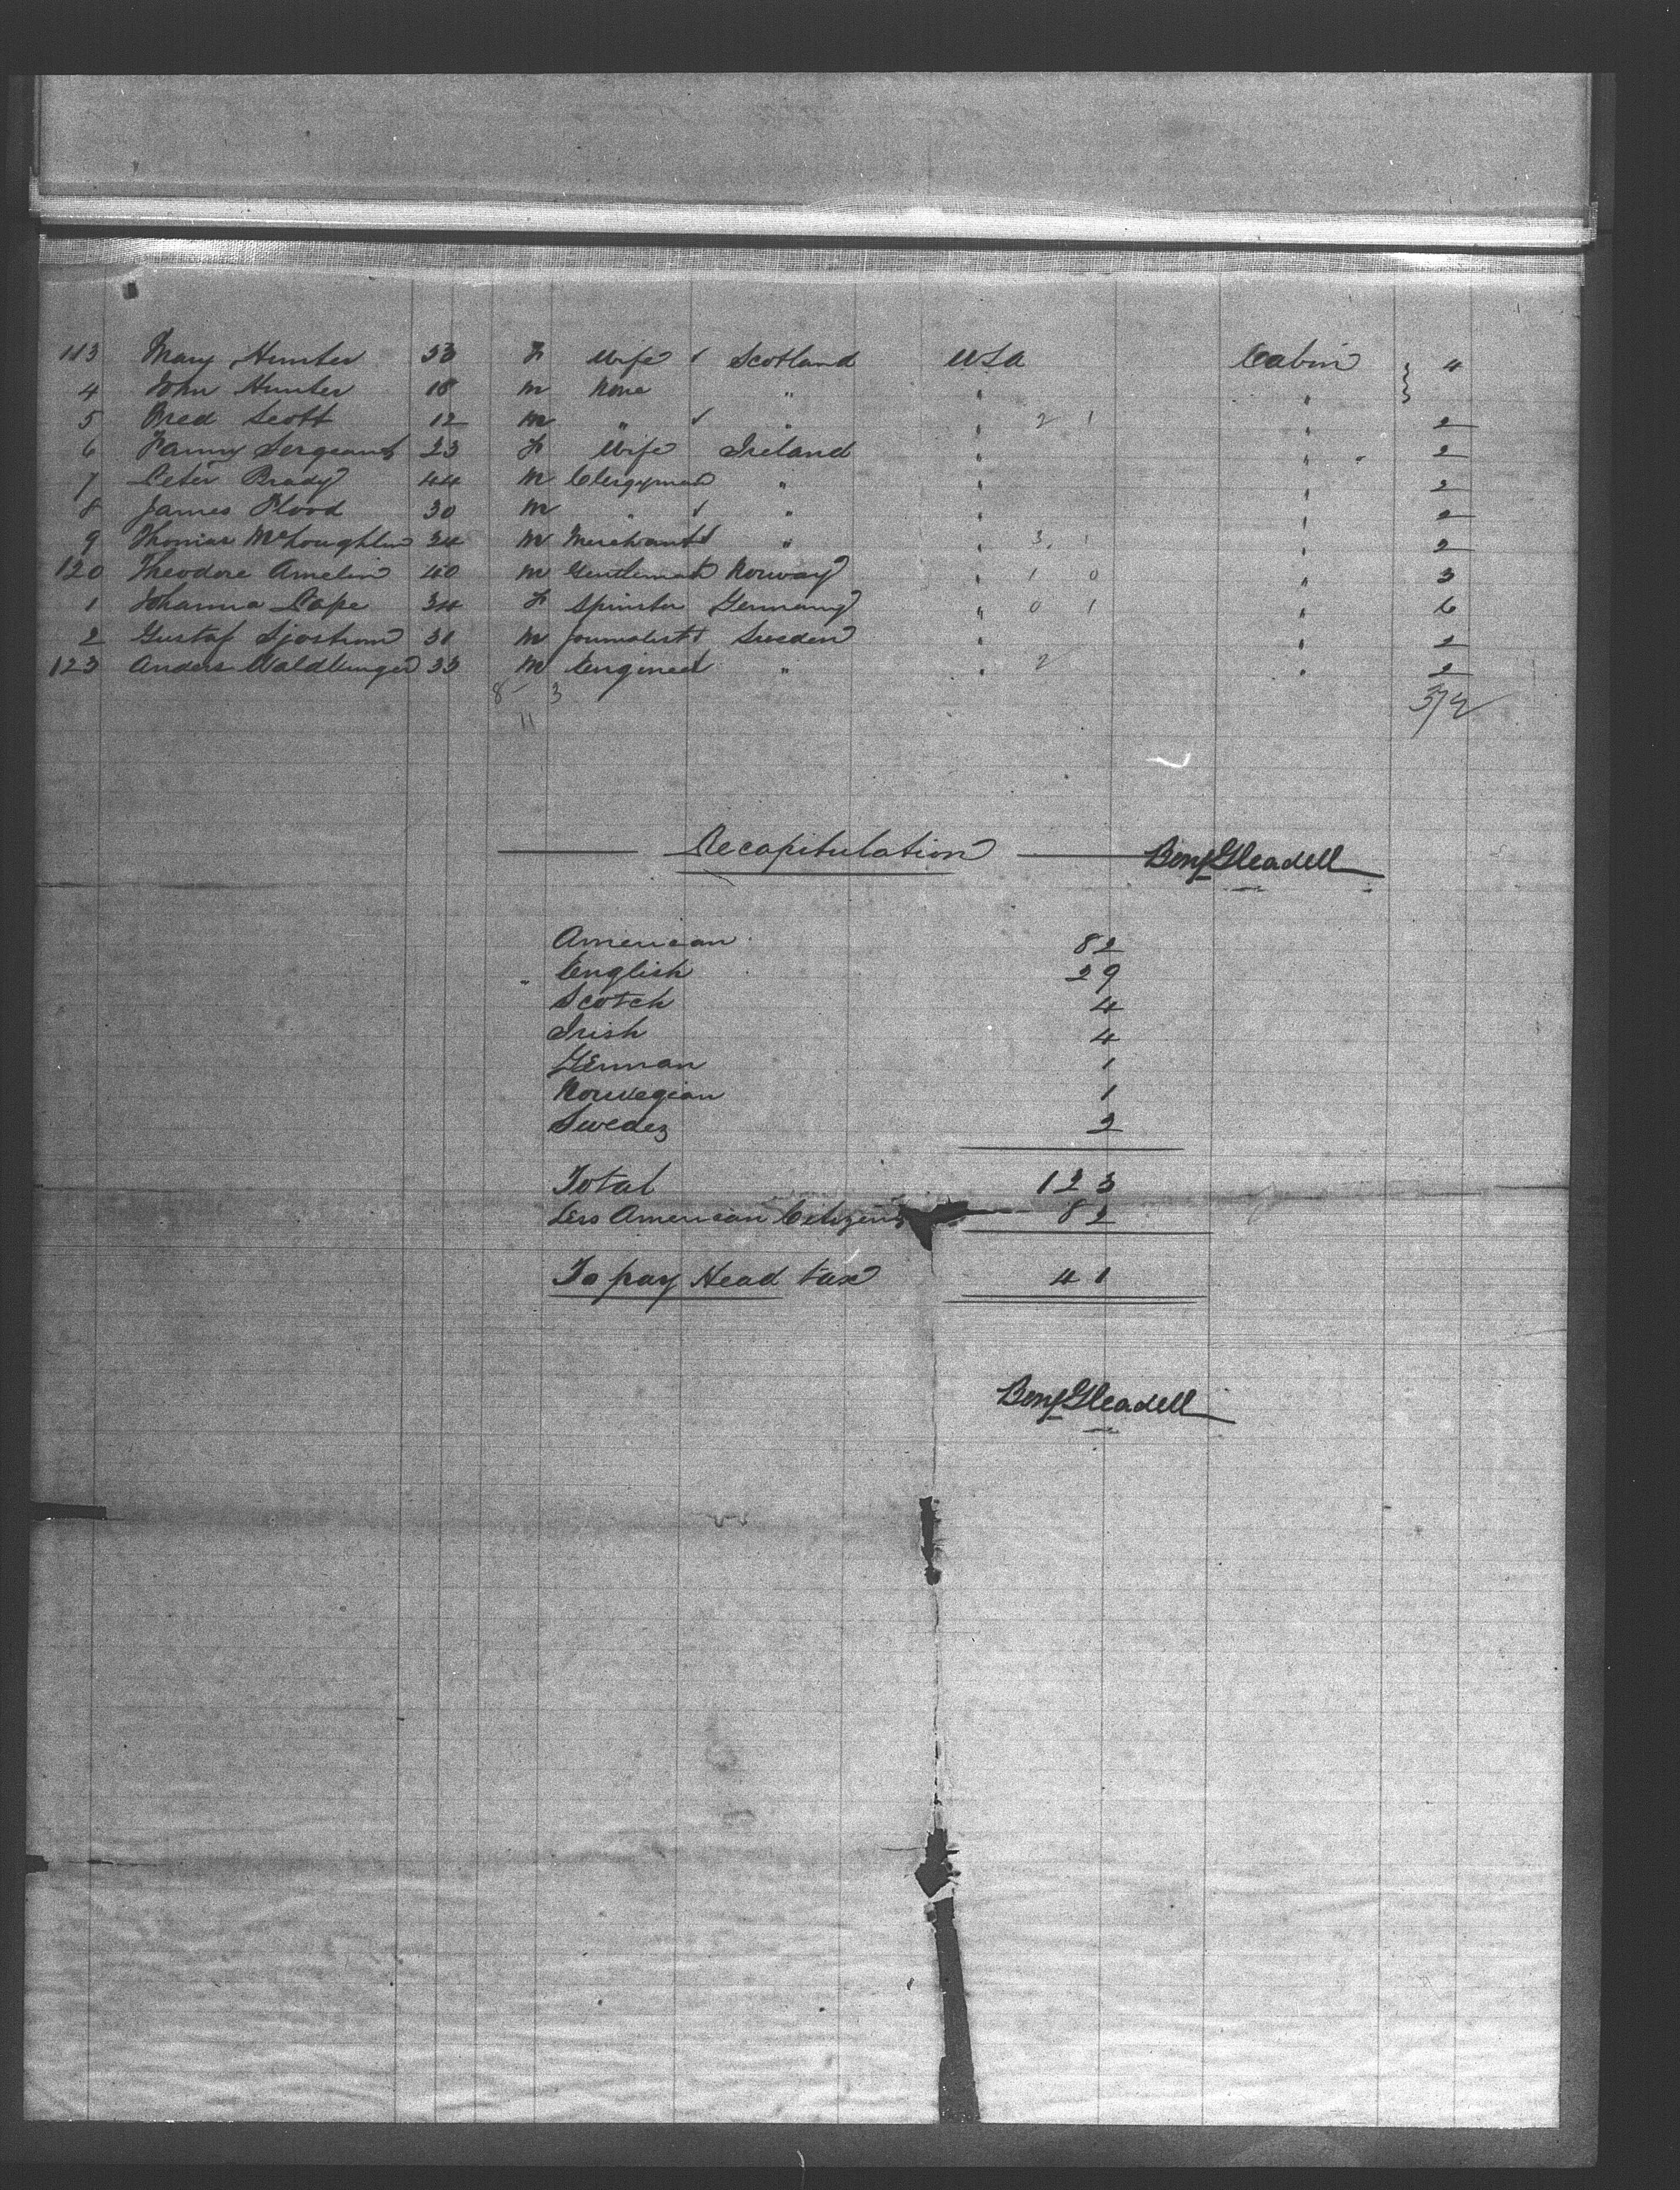 113 Mary Hunter 53 F Wife ✓ Scotland USA Cabin 4
4 John Hunter 18 M None " " "
5 Fred Scott 12 M " ✓ " " 2 1 " 2
6 Fanny Sergeant 23 F Wife Ireland " " 2
7 Peter Brady 44 M Clergyman " " " 2
8 James Flood 30 M " ✓ " " " 2
9 Thomas McLoughlin 34 M Merchant ✓ " " 3 1 " 2
120 Theodore Amelin 40 M Gentleman Norway " 1 0 " 3
1 Johanna Pape 34 F Spinster Germany " 0 1 " 6
2 Gustaf Sjostrom 31 M Journalist ✓ Sweden " " 2
123 Anders Waldburger 33 M Engineer " " 2 " 2
8 3
11
Recapitulation Benj Gleadell
American 82
English 29
Scotch 4
Irish 4
German 1
Norwegian 1
Swedes 2
Total 123
Less American Citizens 82
To pay Head tax 41
Benj Gleadell